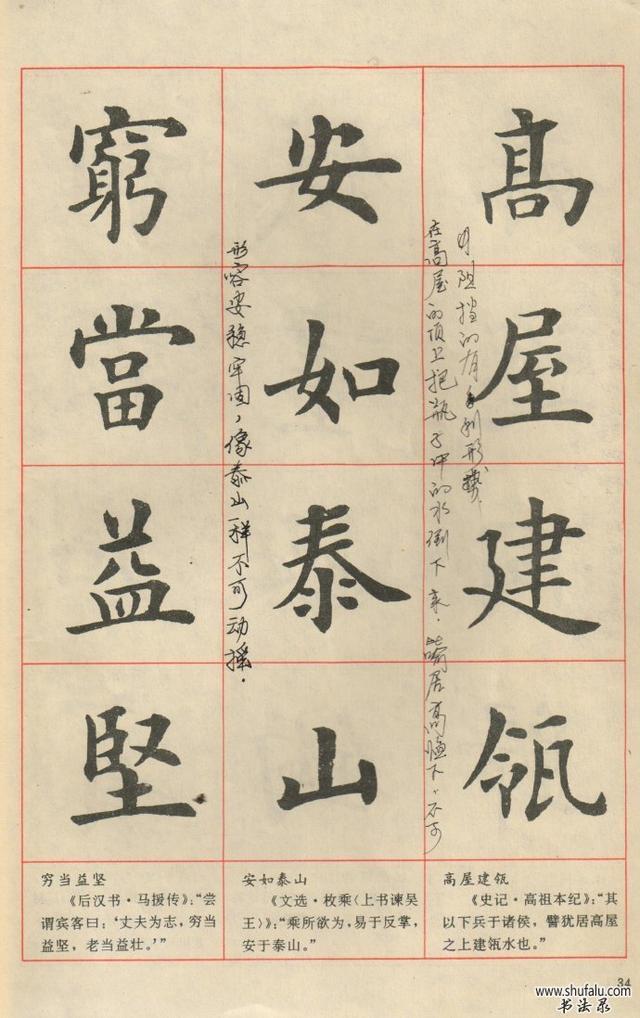 高屋建瓴
安如泰山
窮當益堅
在高屋的顶上把瓶子中的水倒下来.喻居高临下,不可
阻挡的有利形势.
形容安稳牢固,像泰山一样不可动摇.
高屋建瓴
《史记·高祖本纪》:“其
以下兵于诸侯,譬犹居高屋
之上建瓴水也。”
安如泰山
《文选·枚乘〈上书谏吴
王〉》:“乘所欲为,易于反掌,
安于泰山。”
穷当益坚
《后汉书·马援传》:“尝
谓宾客曰:‘丈夫为志,穷当
益坚,老当益壮。’”
34
www.shufalu.com
书法录